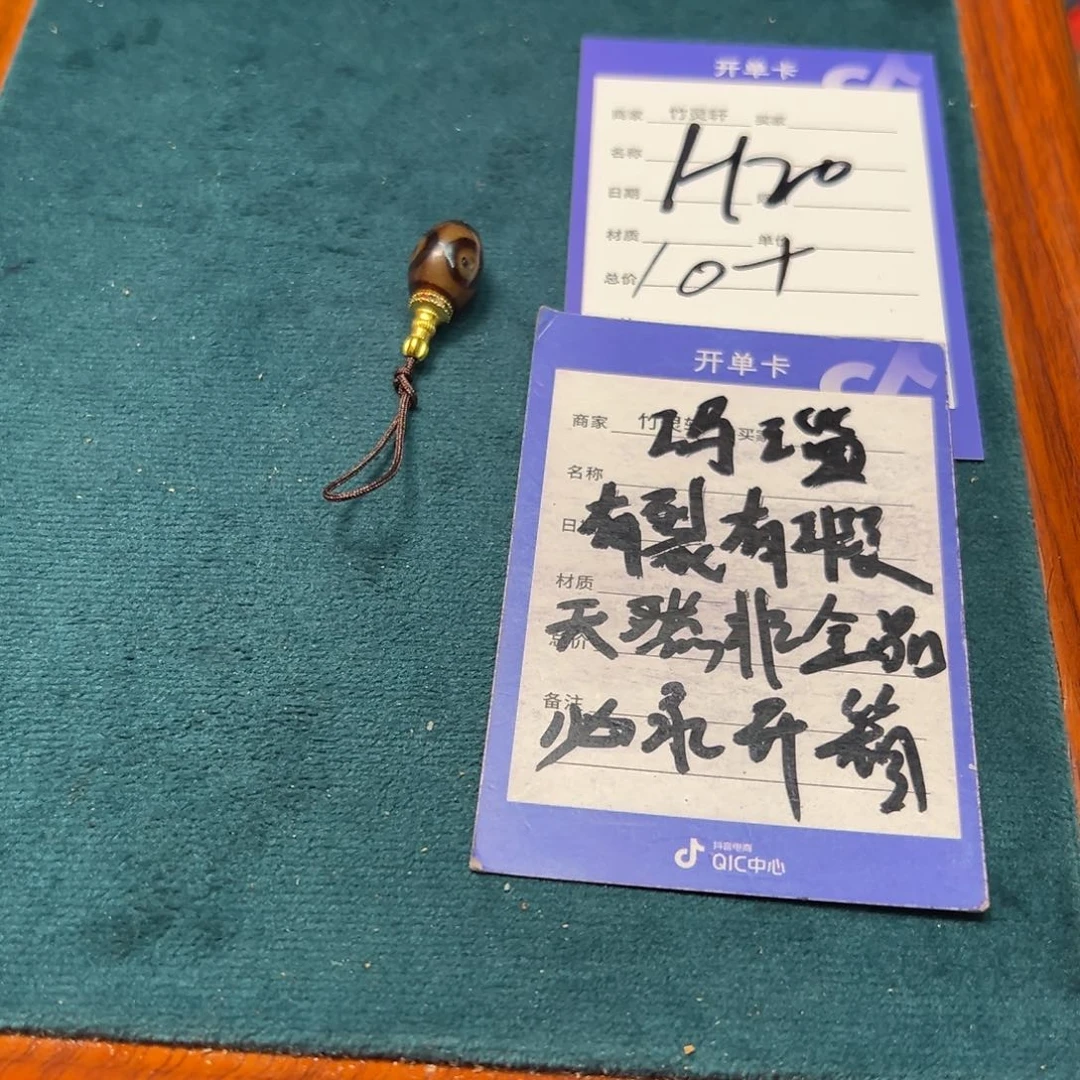 开单卡
商家 竹灵轩 买家
名称
H20
日期
材质 单价
总价
10+
开单卡
商家 竹灵轩 买家
玛瑙
名称
有裂有瑕
日期
材质
天然非全品
总价
备注
必录开箱
抖音电商
QIC中心